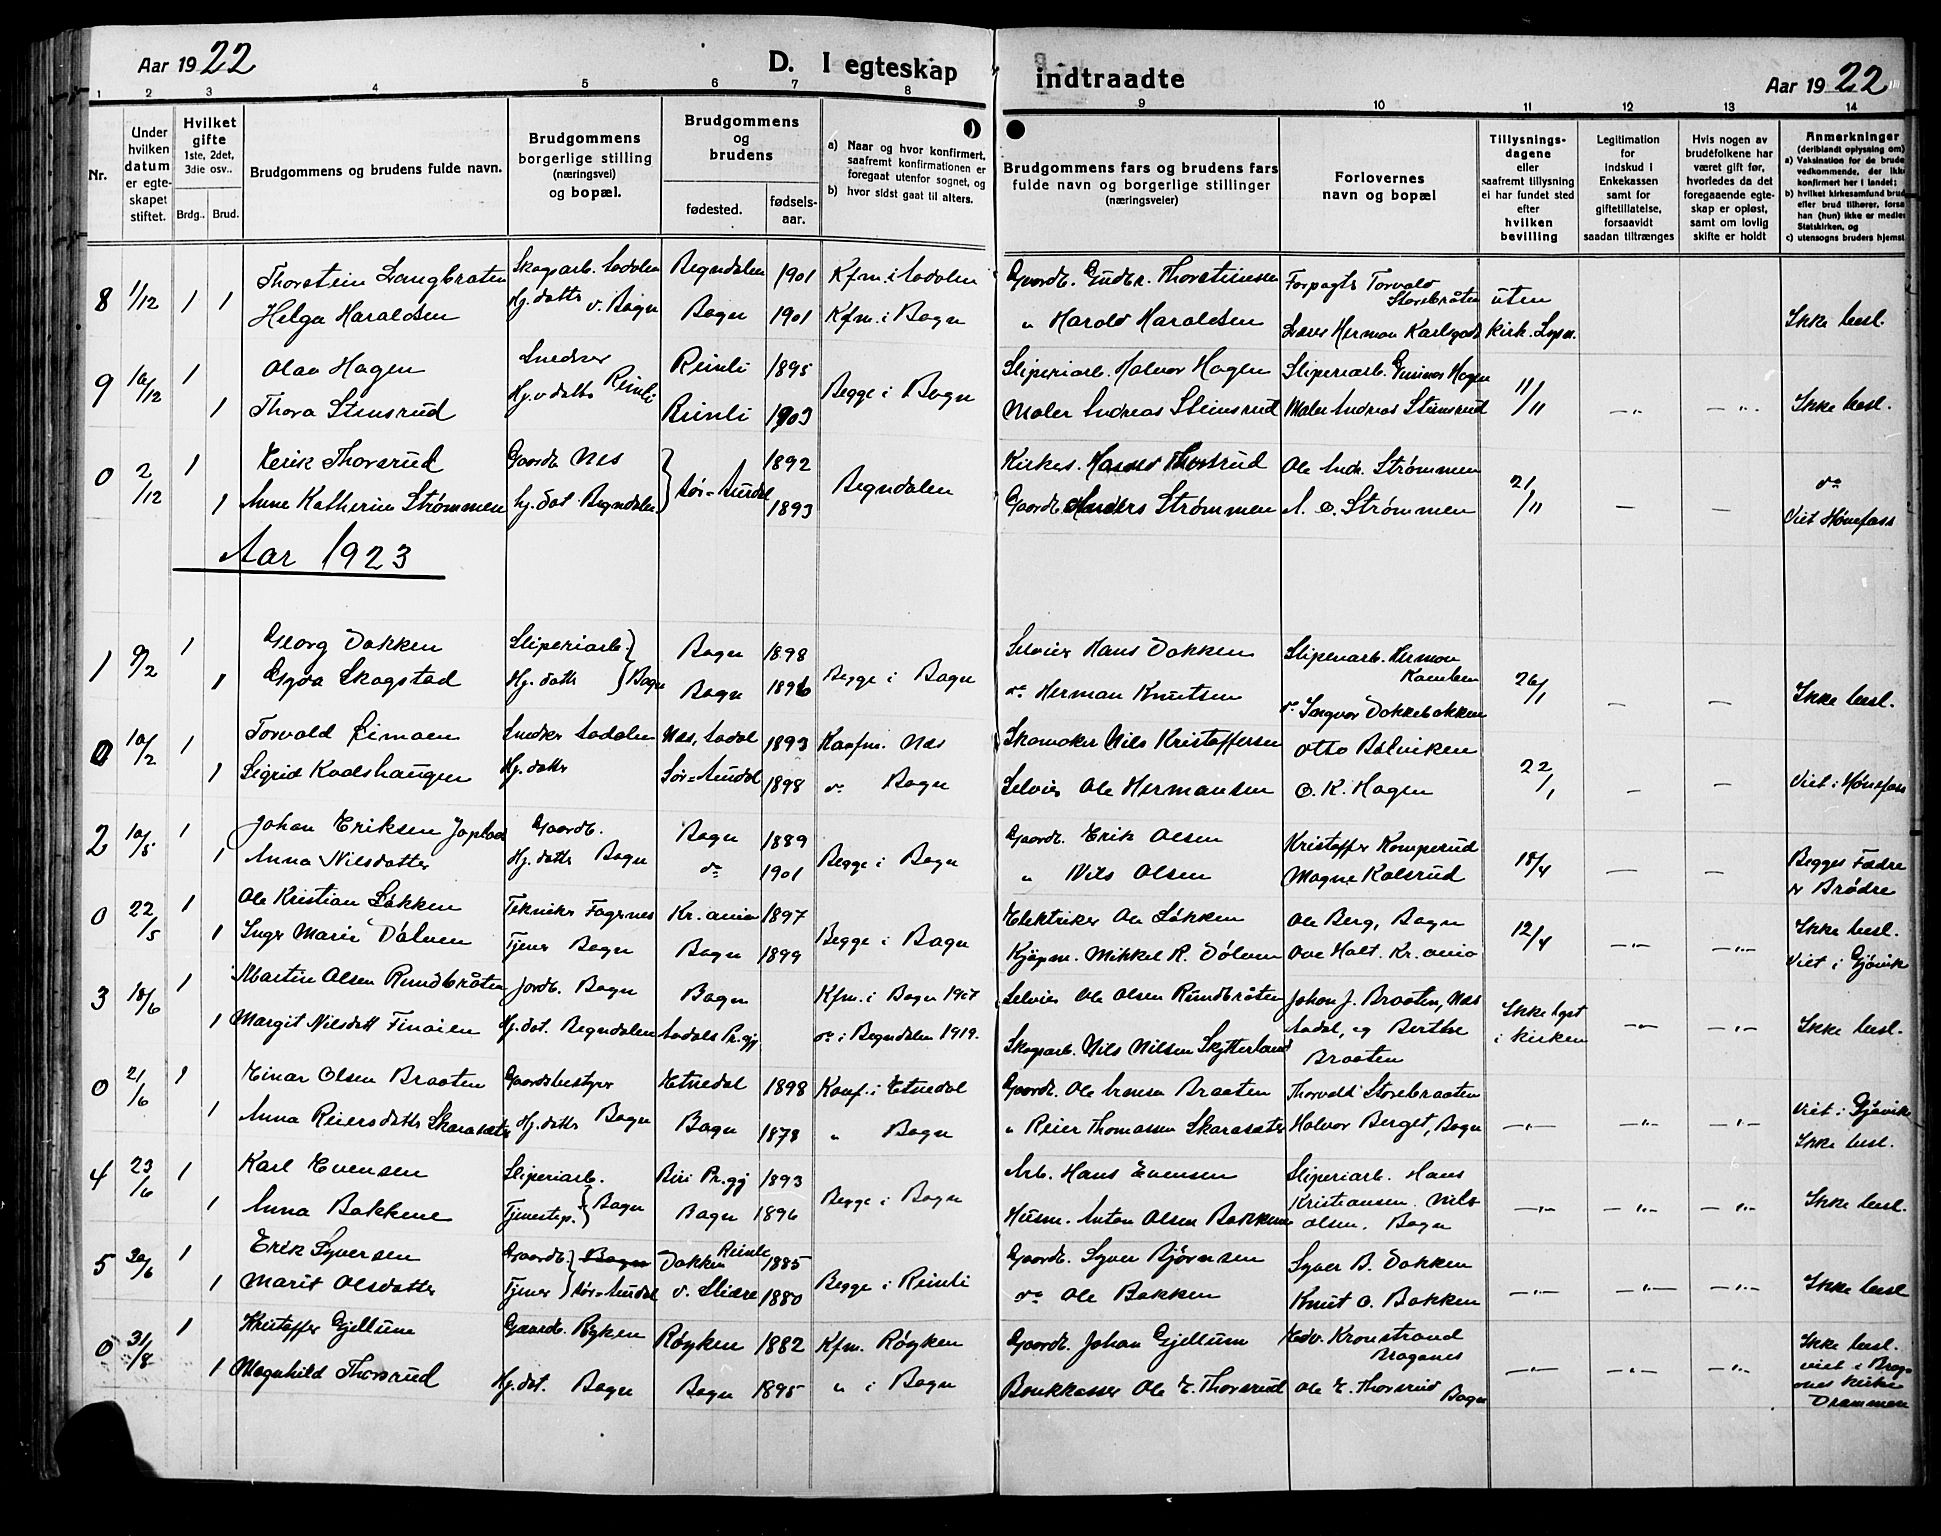 Aar 1922
D. I egteskap
indtraadte
Aar 1922
1 2 3 4 5 6 7 8 9 10 11 12 13 14
Nr.
Under hvilken datum er egteskapet stiftet.
Hvilket gifte 1ste, 2det, 3die osv..
Brdg.. Brud.
Brudgommens og brudens fulde navn.
Brudgommens borgerlige stilling (næringsvei) og bopæl.
Brudgommens og brudens
fødested. fødsels-aar.
a) Naar og hvor konfirmert, saafremt konfirmationen er foregaat utenfor sognet, og
b) hvor sidst gaat til alters.
Brudgommens fars og brudens fars fulde navn og borgerlige stillinger (næringsveier)
Forlovernes navn og bopæl
Tillysnings-dagene eller saafremt tillysning ei har fundet sted efter hvilken bevilling
Legitimation for indskud i Enkekassen samt for giftetillatelse, forsaavidt saadan tiltrænges
Hvis nogen av brudefolkene har været gift før, hvorledes da det foregaaende egteskap er opløst, samt om lovlig skifte er holdt
Anmerkninger (deriblandt oplysning om)
a) Vaksination for de brude vedkommende, der ikke konfirmert her i landet;
b) hvilket kirkesamfund brud eller brud tilhører, forsa han (hun) ikke er medle Statskirken, og
c) utensogns bruders hjemst
8 11/12 1 Thorstein Langbraten Skogsarb. Aadalen Begndalen 1901 Kfm. i Aadalen Gaardb. Gudbr. Thorsteinsen Forpagter Torvald Storebråten uten
1 Helga Haraldsen Hj. datter v. Bagn Bagn 1901 Kfm. i Bagn " Harald Haraldsen Lærer Herman Karlsgodt kirk. Lysn. Ikke besl.
9 16/12 1 Olav Hagen Snedker Reinli 1895 Begge i Bagn Sliperiarb. Halvor Hagen Sliperiarb. Gunnar Hagen 11/11
1 Thora Stensrud Hj. v datter Reinli Reinli 1903 Maler Andreas Steinsrud Maler Andreas Steinsrud —"— —"— Ikke besl.
0 2/12 1 Kerik Thorsrud Gaardb. Næs } Sør-Aurdal 1892 Begndalen Kirkes. Thorsrud Ole Andr. Strømmen 21/11 do
1 Anne Katherine Strømmen hj. dat. Begndalen 1893 Gaardb. Anders Strømmen A. O. Strømmen — — Viet Hønefoss
Aar 1923
1 9/2 1 Georg Dokken Sliperiarb. } Bagn Bagn 1898 Begge i Bagn Selveier Hans Dokken Sliperiarb. Herman 26/1
1 Gyda Skogstad Hj. datter Bagn 1896 do Herman Knutsen do Ingvar Dokkebakken — — Ikke besl.
0 10/2 1 Torvald Limoen Snedker Aadalen Næs, Aadal 1893 Konfm. Næs Skomaker Nils Kristoffersen Otto Bølviken 22/1
1 Sigrid Kvalshaugen Hj. datter Sør-Aurdal 1898 do Bagn Selveier Ole Hermansen O. K. Hagen — — Viet i Hønefoss
2 10/5 1 Johan Eriksen Gaardb. Bagn 1889 Begge i Bagn Gaardb. Erik Olsen Kristoffer Komperud 18/4
1 Anna Nilsdatter Hj. datter Bagn do 1901 " Nils Olsen Magne Kolsrud — — Begges Fædre er Brødre
0 22/5 1 Ole Kristian Løkken Tekniker Fagernes Kr.ania 1897 Begge i Bagn Elektriker Ole Løkken Ole Berg, Bagn 12/4 Ikke besl.
1 Inger Marie Dølven Tjener Bagn Bagn 1899 Kjøpm. Mikkel R. Dølven Ove Holt. Kr. ania —"— —"— Viet i Gjøvik
3 18/6 1 Martin Olsen Rundbråten Jordb. Bagn Bagn Kfm. i Bagn 1907 Selveier Ole Olsen Rundbråten Johan J. Braaten, Næs Ikke lyst
1 Margit Nilsdatt Finnien Hj. dat. Begndalen Aadals Pr.gj do i Begndalen 1919. Skogsarb. Nils Nilsen Skytterland Aadal, og Berthe Braaten i kirken —"— —"— Ikke besl.
0 21/6 1 Einar Olsen Braaten Gaardsbestyrer Etnedal 1898 Konf. i Etnedal Gaardb. Ole Braaten Thorvald Storebraaten Viet i Gjøvik
1 Anna Reiersdatter Skaraseter Hj. datter Bagn Bagn 1878 " Bagn " Reier Thomassen Skaraseter Halvor Berget, Bagn —"— —"— —"— Ikke besl.
4 23/6 1 Karl Evensen Sliperiarb. } Bagn Biri Pr.gj 1893 Begge i Bagn Arb. Hans Evensen Sliperiarb. Hans
1 Anna Bakkene Tjenestep. Bagn 1896 Husm. Anton Olsen Bakkene Kristiansen. Nils Olsen. Bagn —"— —"— —"— Ikke besl.
5 30/6 1 Erik Syversen Gaardb. } Bagn Dokken Reinli 1885 Begge i Reinli Gaardb. Syver Bjørnsen Syver B. Dokken
1 Marit Olsdatter Tjener Sør-Aurdal v. Slidre 1880 do Ole Bakken Knut O. Bakken —"— —"— —"— Ikke besl
0 31/8 1 Kristoffer Gjellum Gaardb. Røyken Røyken 1882 Kfm. Røyken Gaardb. Johan Gjellum Edv. Kronstrand Bragenes Ikke besl.
1 Magnhild Thorsrud Hj. dat. Bagn Bagn 1895 " i Bagn Bankkasser Ole E. Thorsrud Ole E. Thorsrud Bagn —"— —"— —"— viet i Bragenes kirke Drammen